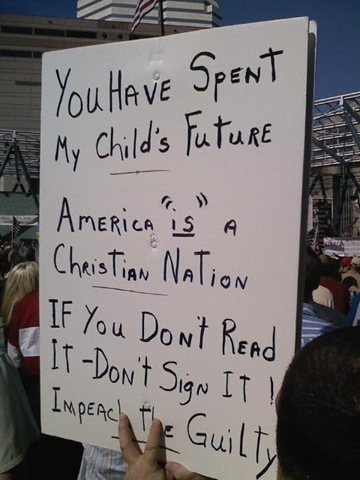 You Have Spent
My Child's Future
America "is" a
Christian Nation
If You Don't Read
It - Don't Sign It!
Impeach the Guilty